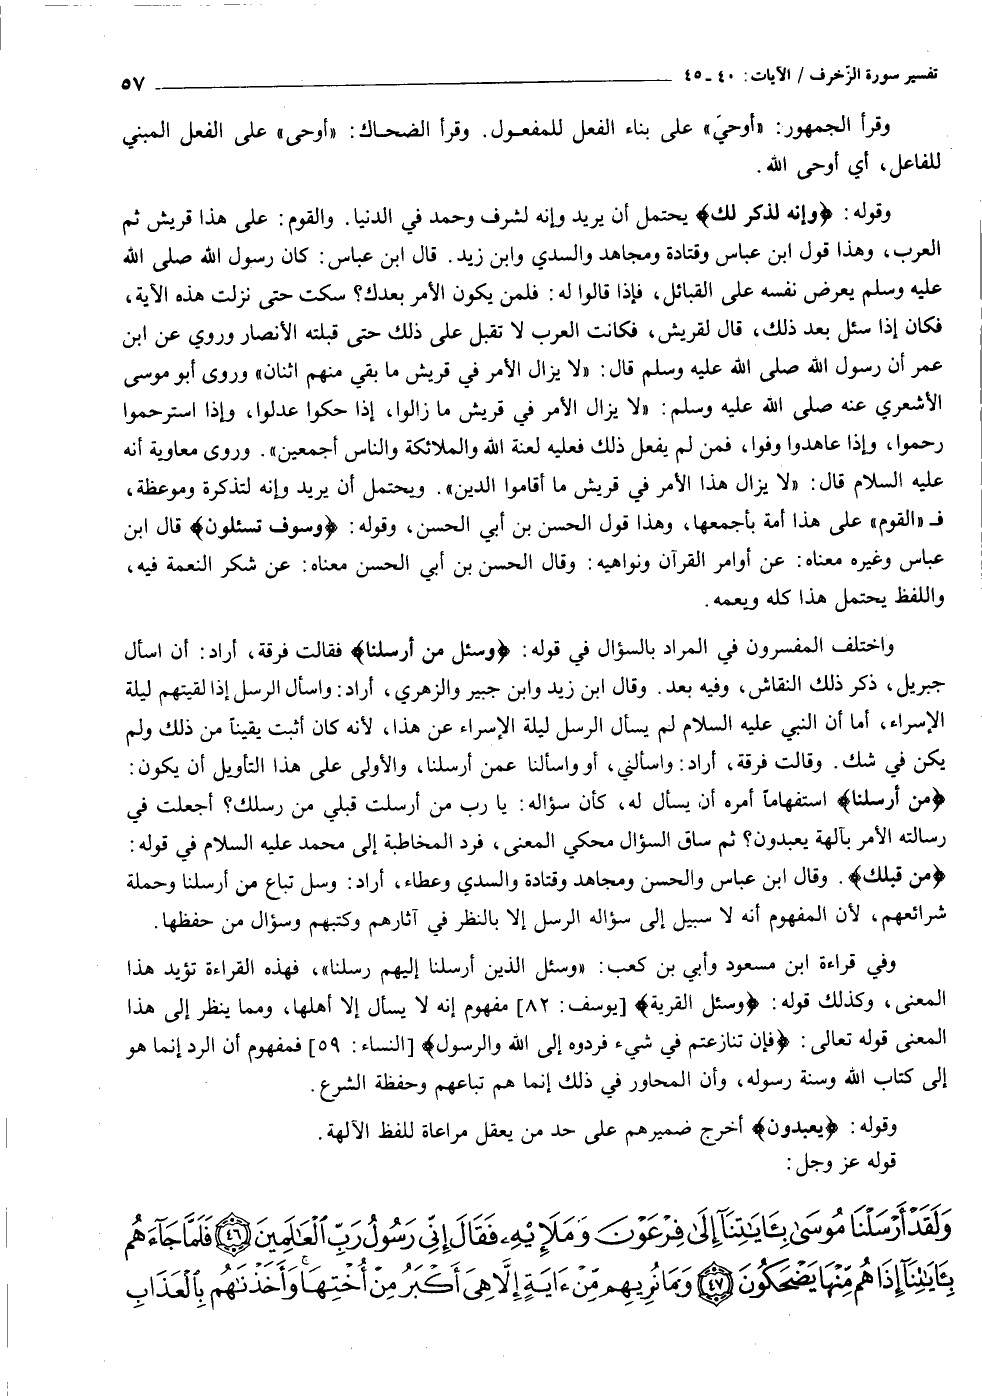 تفسير سورة الزخرف / الآيات: ٤٠ ـ ٤٥ ٥٧
وقرأ الجمهور: «أوحيَ» على بناء الفعل للمفعول. وقرأ الضحاك: «أوحى» على الفعل المبني
للفاعل، أي أوحى الله.
وقوله: ﴿وإنه لذكر لك﴾ يحتمل أن يريد وإنه لشرف وحمد في الدنيا. والقوم: على هذا قريش ثم
العرب، وهذا قول ابن عباس وقتادة ومجاهد والسدي وابن زيد. قال ابن عباس: كان رسول الله صلى الله
عليه وسلم يعرض نفسه على القبائل، فإذا قالوا له: فلمن يكون الأمر بعدك؟ سكت حتى نزلت هذه الآية،
فكان إذا سئل بعد ذلك، قال لقريش، فكانت العرب لا تقبل على ذلك حتى قبلته الأنصار وروي عن ابن
عمر أن رسول الله صلى الله عليه وسلم قال: «لا يزال الأمر في قريش ما بقي منهم اثنان» وروى أبو موسى
الأشعري عنه صلى الله عليه وسلم: «لا يزال الأمر في قريش ما زالوا، إذا حكوا عدلوا، وإذا استرحموا
رحموا، وإذا عاهدوا وفوا، فمن لم يفعل ذلك فعليه لعنة الله والملائكة والناس أجمعين». وروى معاوية أنه
عليه السلام قال: «لا يزال هذا الأمر في قريش ما أقاموا الدين». ويحتمل أن يريد وإنه لتذكرة وموعظة،
فـ «القوم» على هذا أمة بأجمعها، وهذا قول الحسن بن أبي الحسن، وقوله: ﴿وسوف تسئلون﴾ قال ابن
عباس وغيره معناه: عن أوامر القرآن ونواهيه: وقال الحسن بن أبي الحسن معناه: عن شكر النعمة فيه،
واللفظ يحتمل هذا كله ويعمه.
واختلف المفسرون في المراد بالسؤال في قوله: ﴿وسئل من أرسلنا﴾ فقالت فرقة، أراد: أن اسأل
جبريل، ذكر ذلك النقاش، وفيه بعد. وقال ابن زيد وابن جبير والزهري، أراد: واسأل الرسل إذا لقيتهم ليلة
الإسراء، أما أن النبي عليه السلام لم يسأل الرسل ليلة الإسراء عن هذا، لأنه كان أثبت يقيناً من ذلك ولم
يكن في شك. وقالت فرقة، أراد: واسألني، أو واسألنا عمن أرسلنا، والأولى على هذا التأويل أن يكون:
﴿من أرسلنا﴾ استفهاماً أمره أن يسأل له، كأن سؤاله: يا رب من أرسلت قبلي من رسلك؟ أجعلت في
رسالته الأمر بآلهة يعبدون؟ ثم ساق السؤال محكي المعنى، فرد المخاطبة إلى محمد عليه السلام في قوله:
﴿من قبلك﴾. وقال ابن عباس والحسن ومجاهد وقتادة والسدي وعطاء، أراد: وسل تباع من أرسلنا وحملة
شرائعهم، لأن المفهوم أنه لا سبيل إلى سؤاله الرسل إلا بالنظر في آثارهم وكتبهم وسؤال من حفظها.
وفي قراءة ابن مسعود وأبي بن كعب: «وسئل الذين أرسلنا إليهم رسلنا»، فهذه القراءة تؤيد هذا
المعنى، وكذلك قوله: ﴿وسئل القرية﴾ [يوسف: ٨٢] مفهوم إنه لا يسأل إلا أهلها، ومما ينظر إلى هذا
المعنى قوله تعالى: ﴿فإن تنازعتم في شيء فردوه إلى الله والرسول﴾ [النساء: ٥٩] فمفهوم أن الرد إنما هو
إلى كتاب الله وسنة رسوله، وأن المحاور في ذلك إنما هم تباعهم وحفظة الشرع.
وقوله: ﴿يعبدون﴾ أخرج ضميرهم على حد من يعقل مراعاة للفظ الآلهة.
قوله عز وجل:
وَلَقَدْ أَرْسَلْنَا مُوسَىٰ بِـَٔايَٰتِنَآ إِلَىٰ فِرْعَوْنَ وَمَلَإِي۟هِۦ فَقَالَ إِنِّى رَسُولُ رَبِّ ٱلْعَٰلَمِينَ ﴿٤٦﴾ فَلَمَّا جَآءَهُم
بِـَٔايَٰتِنَآ إِذَا هُم مِّنْهَا يَضْحَكُونَ ﴿٤٧﴾ وَمَا نُرِيهِم مِّنْ ءَايَةٍ إِلَّا هِىَ أَكْبَرُ مِنْ أُخْتِهَا ۖ وَأَخَذْنَٰهُم بِٱلْعَذَابِ